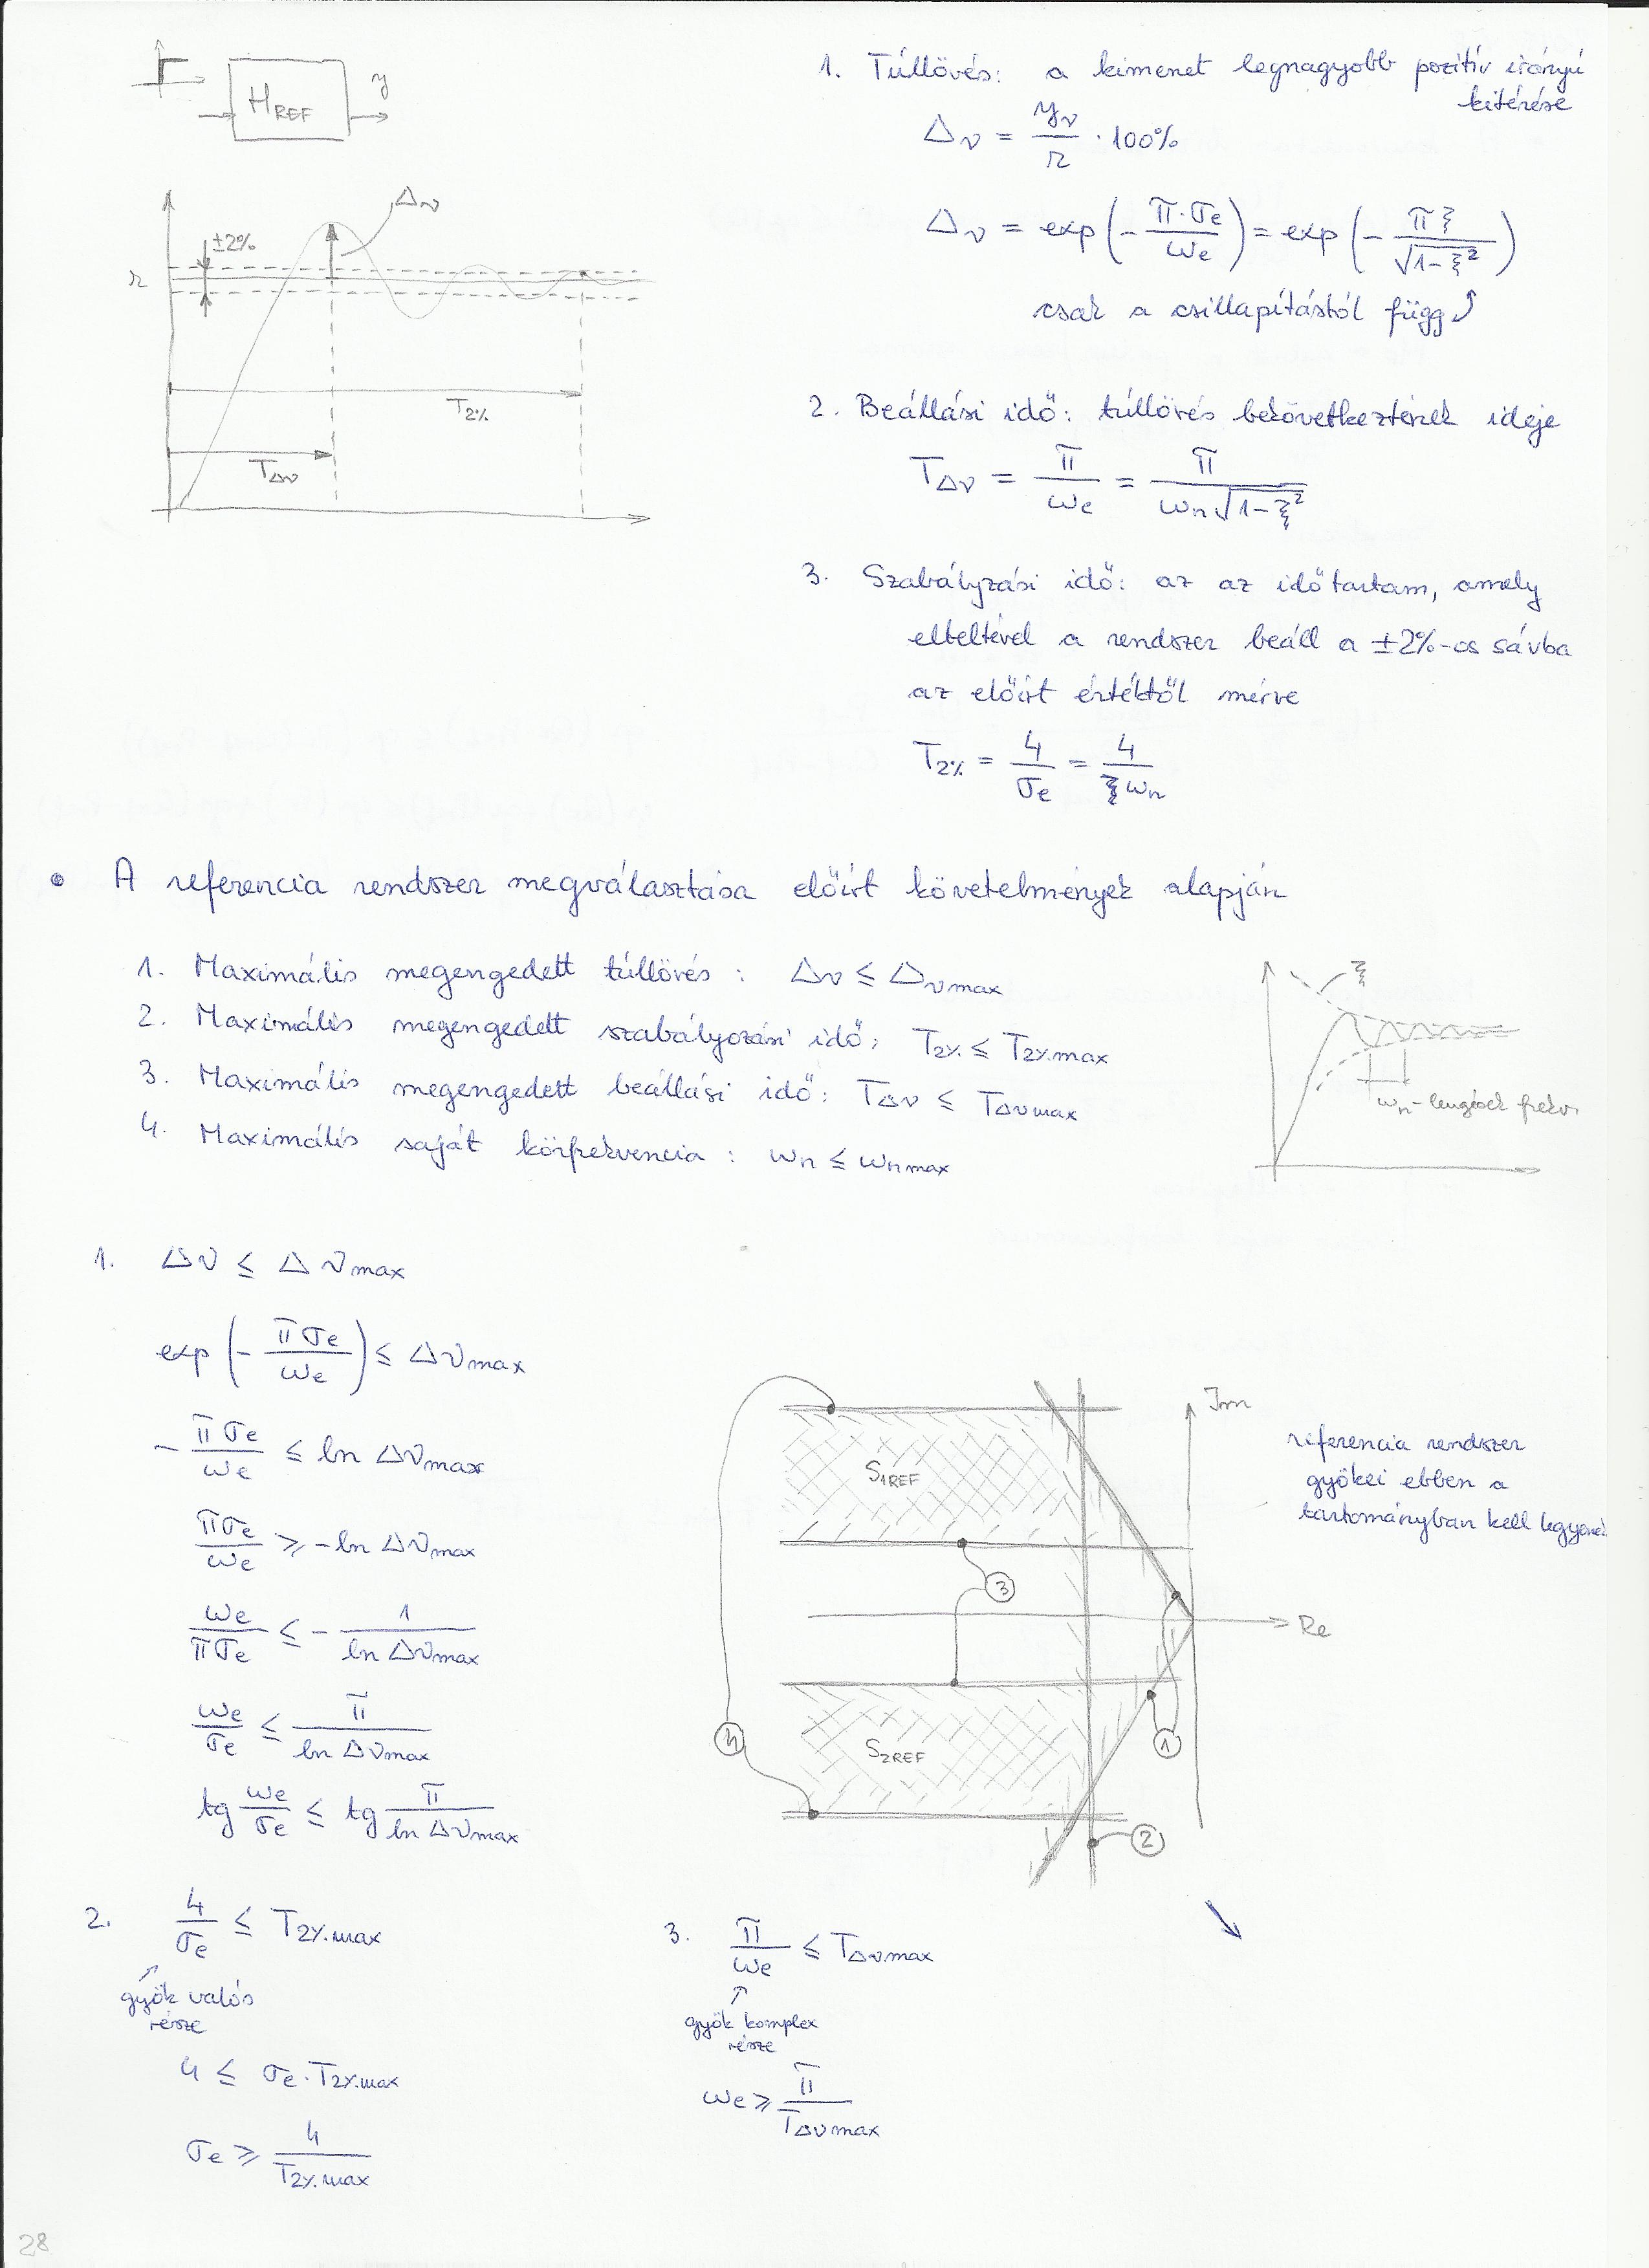 H_REF
y
1. Túllövés: a kimenet legnagyobb pozitív irányú
kitérése
Δv = y_v / r · 100%
Δv
±2%
r
T_2%
T_Δv
Δv = exp(- π·σe / ωe) = exp(- πξ / √1-ξ²)
csak a csillapítástól függ
2. Beállási idő: túllövés bekövetkeztének ideje
T_Δv = π / ωe = π / ωn√1-ξ²
3. Szabályzási idő: az az időtartam, amely
elteltével a rendszer beáll a ±2%-os sávba
az előírt értéktől mérve
T_2% = 4 / σe = 4 / ξωn
• A referencia rendszer megválasztása előírt követelmények alapján
1. Maximális megengedett túllövés: Δv ≤ Δvmax
2. Maximális megengedett szabályozási idő: T2% ≤ T2%max
3. Maximális megengedett beállási idő: TΔv ≤ TΔvmax
4. Maximális saját körfrekvencia: ωn ≤ ωnmax
ξ
ωn-lengések frekv.
1. Δv ≤ Δvmax
exp(- πσe / ωe) ≤ Δvmax
- πσe / ωe ≤ ln Δvmax
πσe / ωe ≥ -ln Δvmax
ωe / πσe ≤ - 1 / ln Δvmax
ωe / σe ≤ π / ln Δvmax
tg ωe / σe ≤ tg π / ln Δvmax
Im
Re
S1REF
S2REF
3
4
1
2
referencia rendszer
gyökei ebben a
tartományban kell legyenek
2. 4 / σe ≤ T2%max
gyök valós
része
4 ≤ σe·T2%max
σe ≥ 4 / T2%max
3. π / ωe ≤ TΔvmax
gyök komplex
része
ωe ≥ π / TΔvmax
28